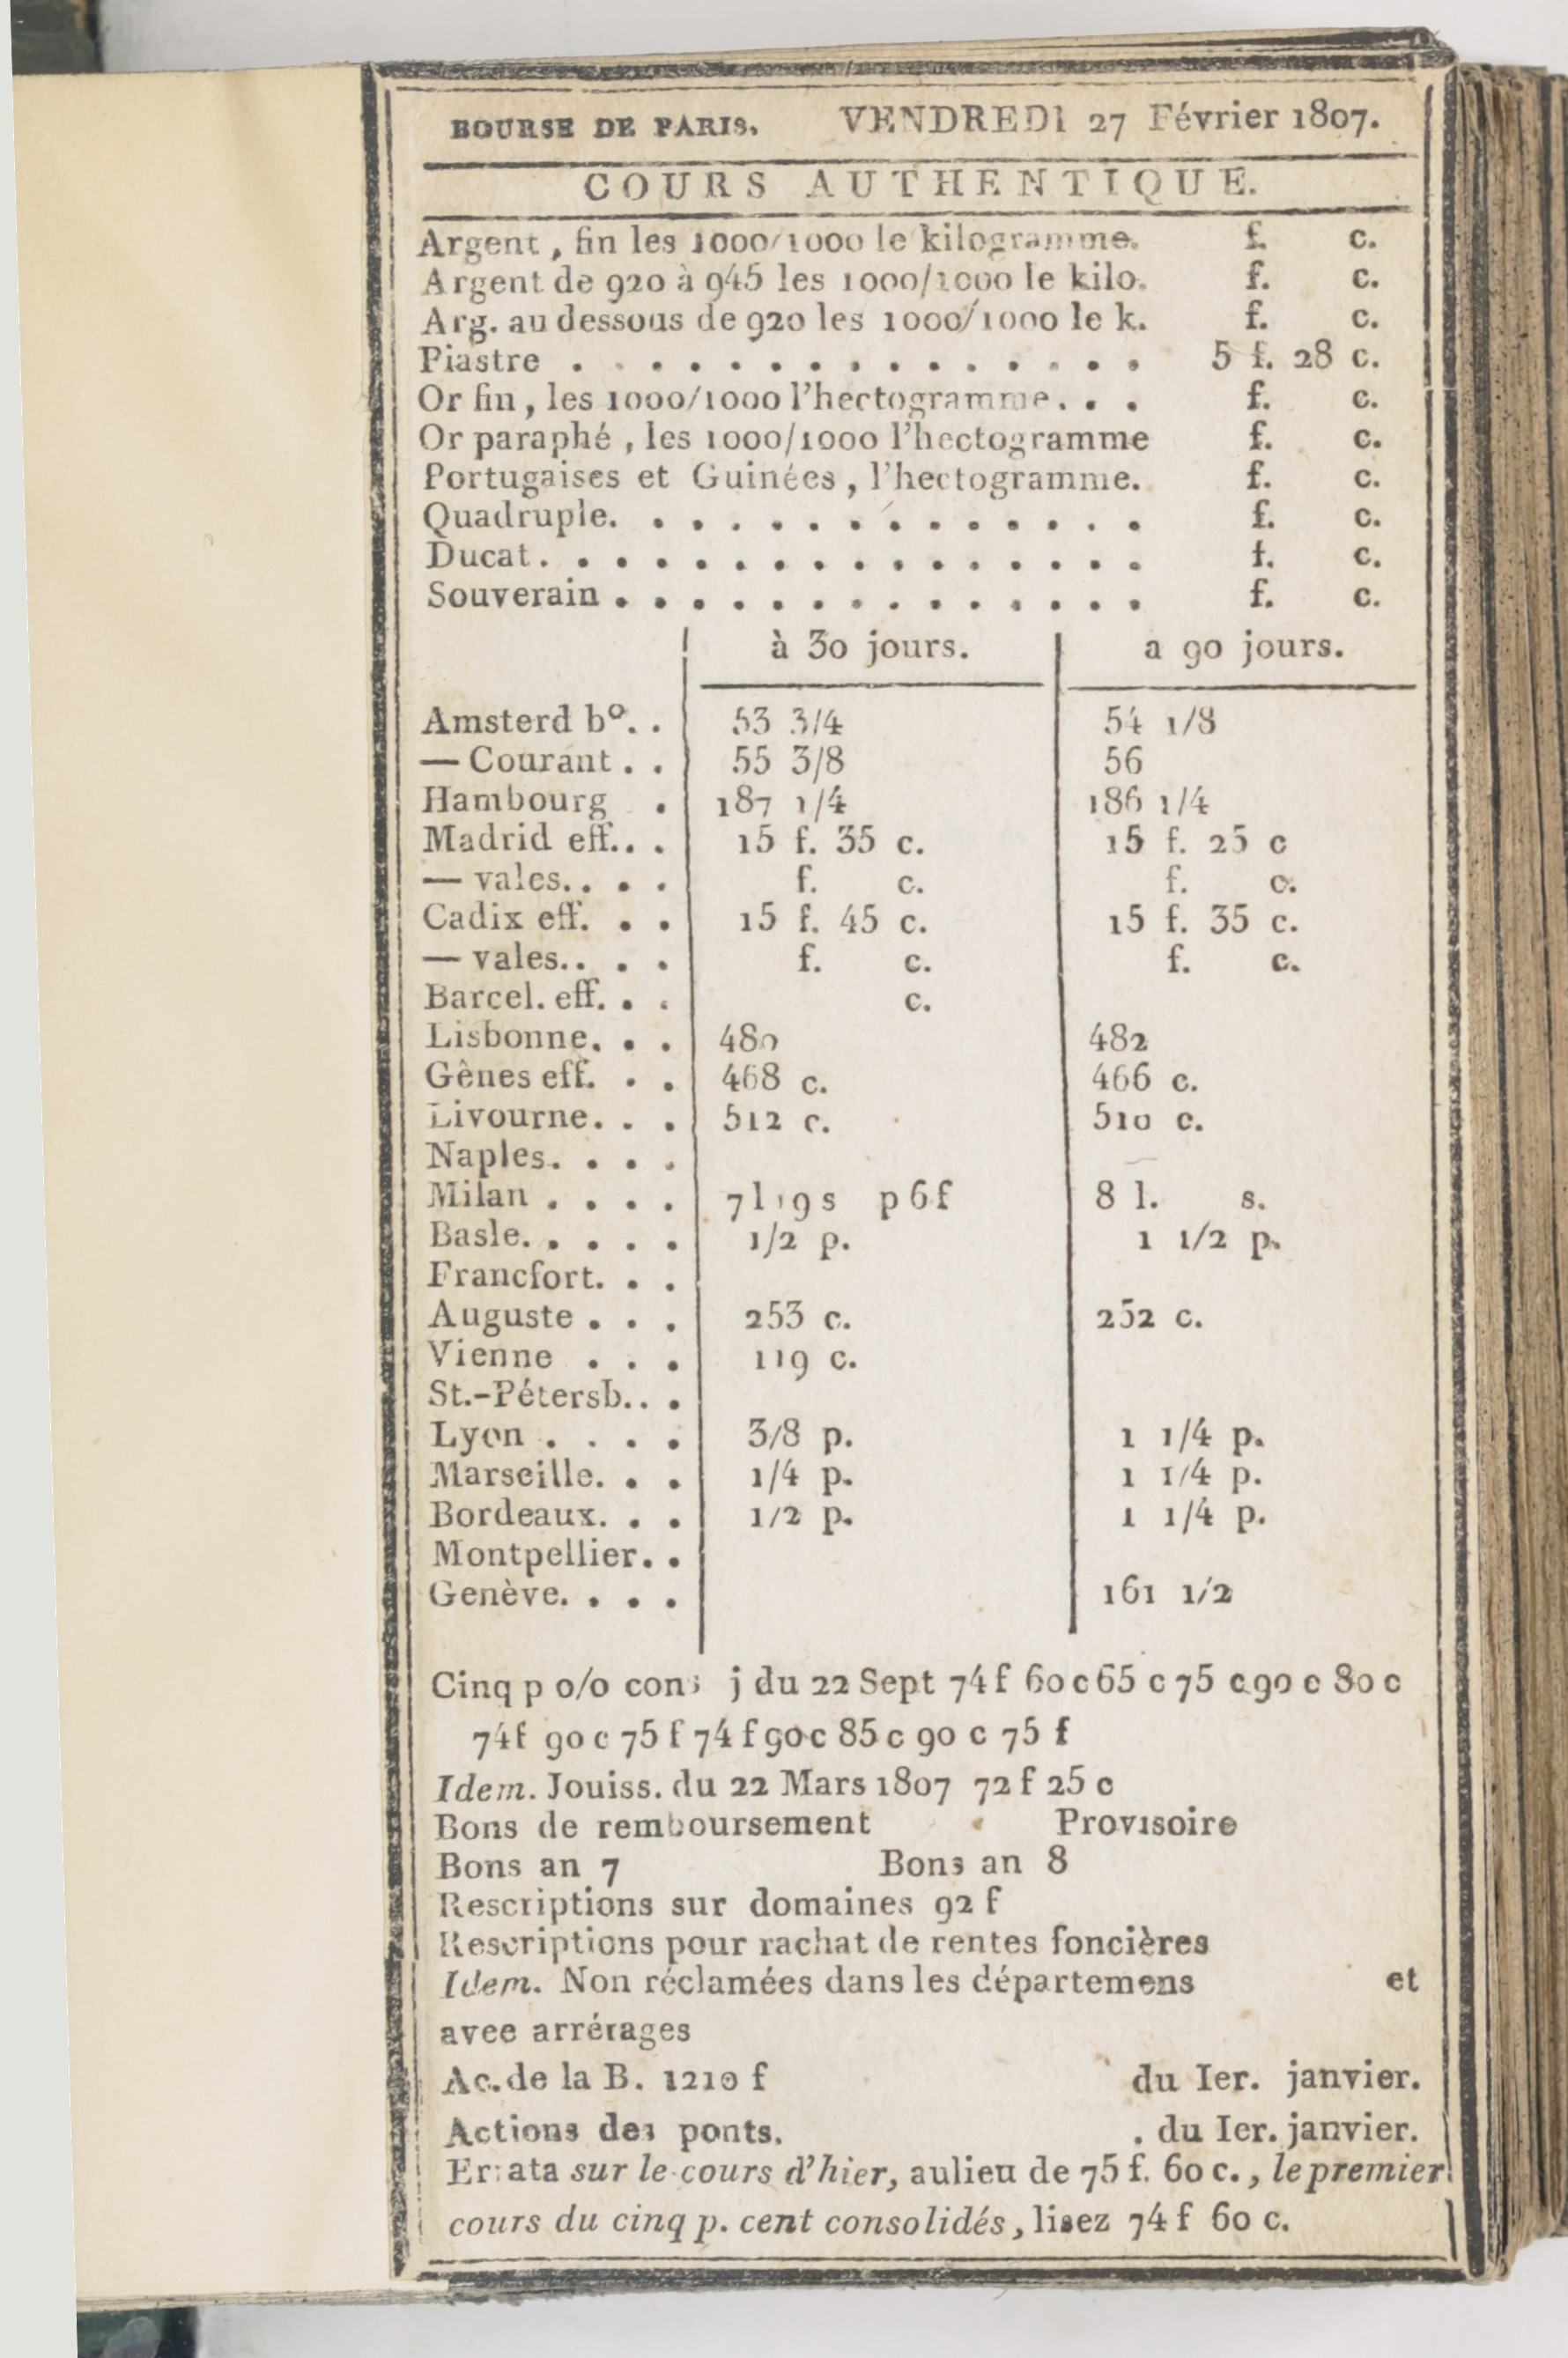 BOURSE DE PARIS. VENDREDI 27 Février 1807.
COURS AUTHENTIQUE.
Argent, fin les 1000/1000 le kilogramme. f. c.
Argent de 920 à 945 les 1000/1000 le kilo. f. c.
Arg. au dessous de 920 les 1000/1000 le k. f. c.
Piastre . . . . . . . . . . . . . . . 5 f. 28 c.
Or fin, les 1000/1000 l'hectogramme. . . f. c.
Or paraphé, les 1000/1000 l'hectogramme f. c.
Portugaises et Guinées, l'hectogramme. f. c.
Quadruple. . . . . . . . . . . . . . f. c.
Ducat. . . . . . . . . . . . . . . . f. c.
Souverain . . . . . . . . . . . . . . f. c.
à 30 jours. a 90 jours.
Amsterd bº. . 53 3/4 54 1/8
— Courant . . 55 3/8 56
Hambourg . 187 1/4 186 1/4
Madrid eff. . . 15 f. 35 c. 15 f. 25 c
— vales. . . . f. c. f. c.
Cadix eff. . . 15 f. 45 c. 15 f. 35 c.
— vales. . . . f. c. f. c.
Barcel. eff. . . c.
Lisbonne. . . 480 482
Gênes eff. . . 468 c. 466 c.
Livourne. . . 512 c. 510 c.
Naples. . . .
Milan . . . . 7 l 19 s p 6 f 8 l. s.
Basle. . . . . 1/2 p. 1 1/2 p.
Francfort. . .
Auguste . . . 253 c. 252 c.
Vienne . . . 119 c.
St.-Pétersb. . .
Lyon . . . . 3/8 p. 1 1/4 p.
Marseille. . . 1/4 p. 1 1/4 p.
Bordeaux. . . 1/2 p. 1 1/4 p.
Montpellier. .
Genève. . . . 161 1/2
Cinq p o/o cons j du 22 Sept 74 f 60 c 65 c 75 c 90 c 80 c
74 f 90 c 75 f 74 f 90 c 85 c 90 c 75 f
Idem. Jouiss. du 22 Mars 1807 72 f 25 c
Bons de remboursement Provisoire
Bons an 7 Bons an 8
Rescriptions sur domaines 92 f
Rescriptions pour rachat de rentes foncières
Idem. Non réclamées dans les départemens et
avec arrérages
Ac. de la B. 1210 f du Ier. janvier.
Actions des ponts. . du Ier. janvier.
Errata sur le cours d'hier, aulieu de 75 f. 60 c., le premier
cours du cinq p. cent consolidés, lisez 74 f 60 c.